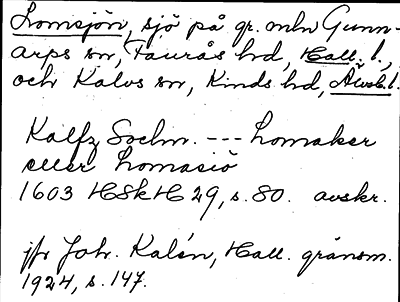 Lomsjön, sjö på gr. mln Gunn-
arps sn, Faurås hd, Hall. l.,
och Kalvs sn, Kinds hd, Älvsb l.
Kalfz Sochn. --- Lomaker
eller Lomasiö
1603 HSkH 29, s. 80. avskr.
jfr Joh. Kalén, Hall. gränsm.
1924, s. 147.